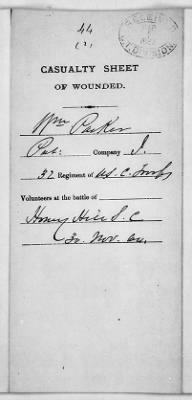 44
(2)
CASUALTY SHEET
OF WOUNDED.
Wm Parker
Pvt: Company I.
32 Regiment of U.S. C. Troops
Volunteers at the battle of
Honey Hill S. C
30. Nov. 64.